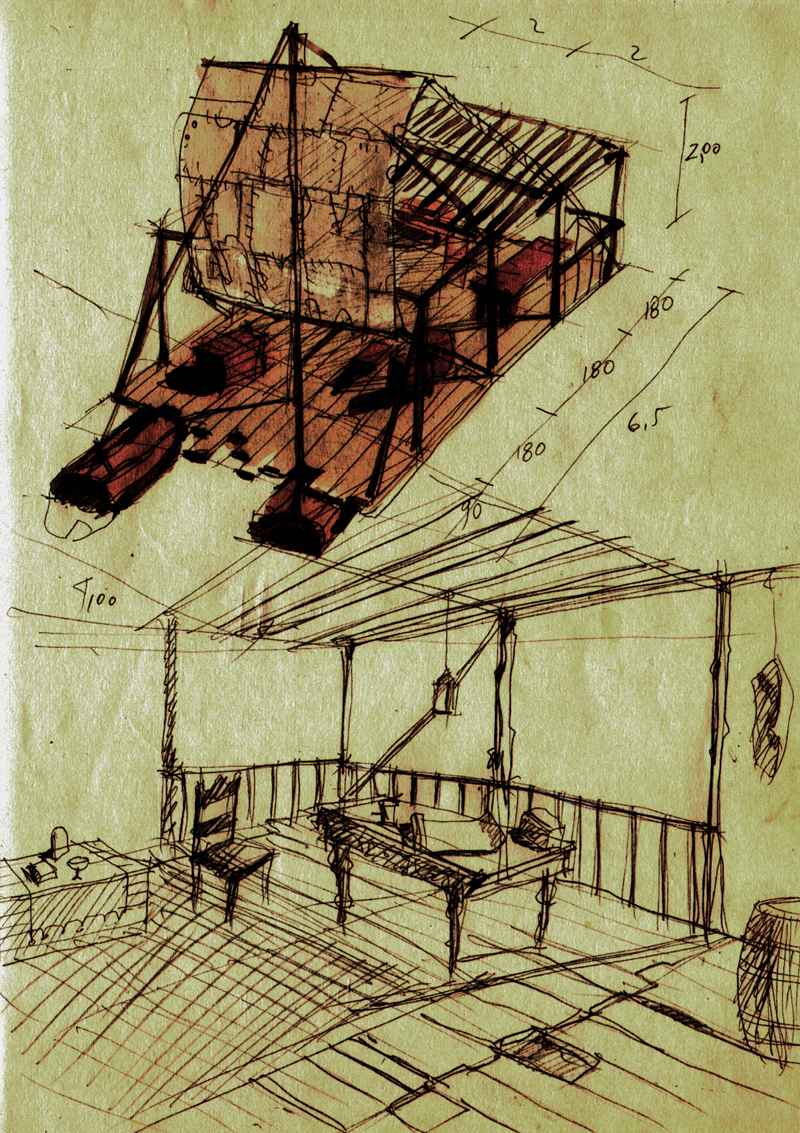 2
2
2,00
180
180
6,5
180
90
4,00